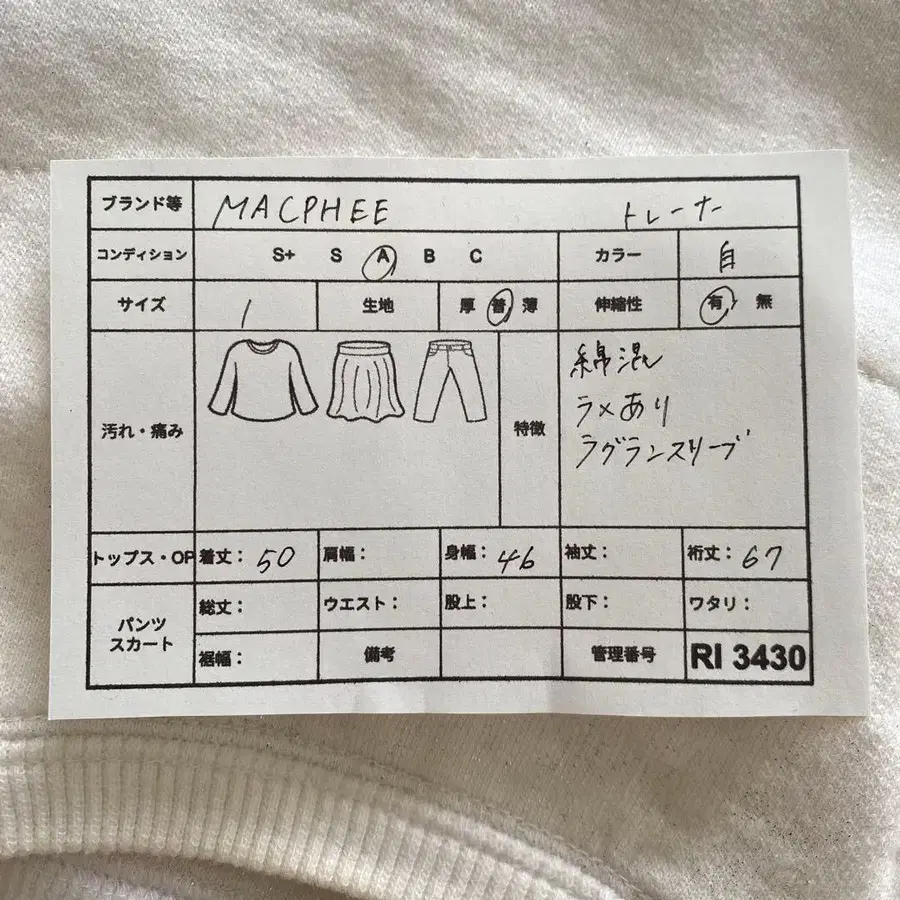 ブランド等 MACPHEE トレーナー
コンディション S+ S A B C カラー 白
サイズ 1 生地 厚 普 薄 伸縮性 有 無
汚れ・痛み 特徴 綿混
ラメあり
ラグランスリーブ
トップス・OP 着丈：50 肩幅： 身幅：46 袖丈： 裄丈：67
パンツ スカート 総丈： ウエスト： 股上： 股下： ワタリ：
裾幅： 備考 管理番号 RI 3430